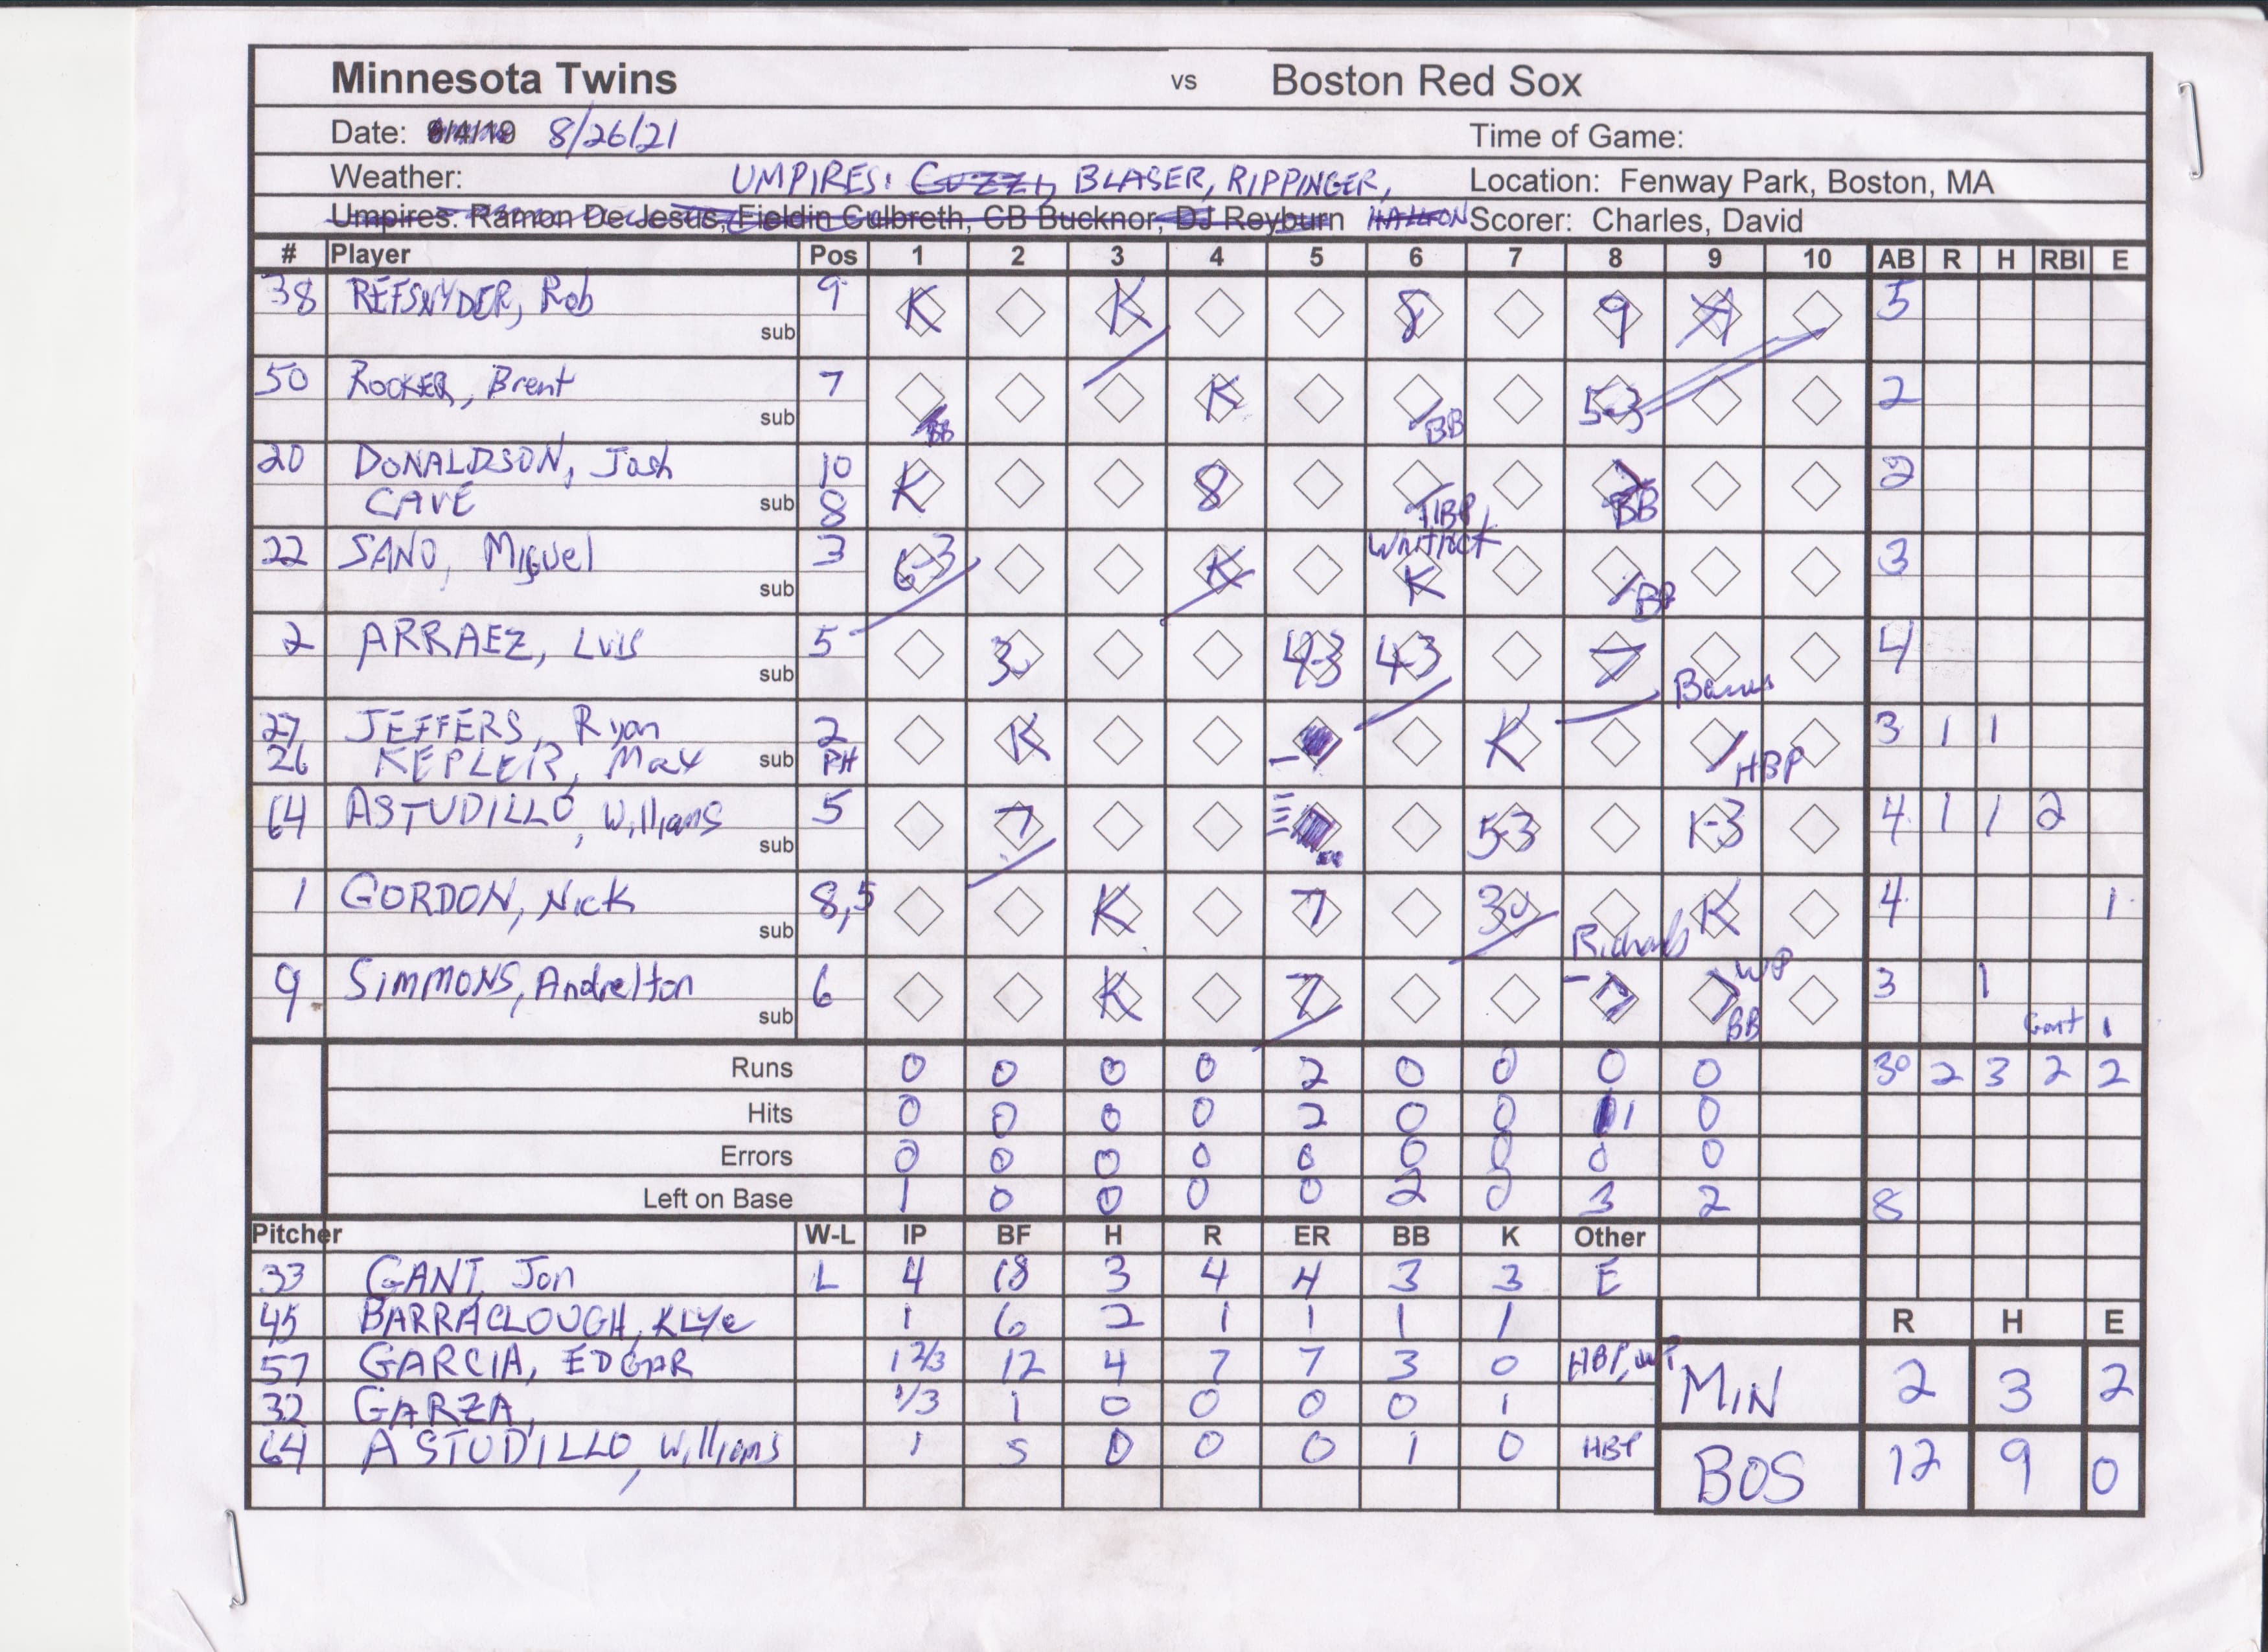 Minnesota Twins vs Boston Red Sox
Date: 8/26/21 Time of Game:
Weather: UMPIRES: Cuzzi, BLASER, RIPPINGER, Location: Fenway Park, Boston, MA
Umpires: Ramon De Jesus, Fieldin Culbreth, CB Bucknor, DJ Reyburn Scorer: Charles, David
# Player Pos 1 2 3 4 5 6 7 8 9 10 AB R H RBI E
38 REFSNYDER, Rob 9 K K 8 9 5
sub
50 ROOKER, Brent 7 BB K BB 5-3 2
sub
20 DONALDSON, Josh 10 K 8 HBP BB 2
CAVE sub 8
22 SANO, Miguel 3 6-3 K Whitlock K BB 3
sub
2 ARRAEZ, Luis 5 3 43 43 7 4
sub Barnes
27 JEFFERS, Ryan 2 K K 3 1 1
26 KEPLER, Max sub PH HBP
64 ASTUDILLO, Williams 5 7 53 1-3 4 1 1 2
sub
1 GORDON, Nick 8,5 K 7 3U K 4 1
sub Richards
9 SIMMONS, Andrelton 6 K 7 7 WP BB 3 1
sub Gant 1
Runs 0 0 0 0 2 0 0 0 0 30 2 3 2 2
Hits 0 0 0 0 2 0 0 1 0
Errors 0 0 0 0 0 0 0 0 0
Left on Base 1 0 0 0 0 2 0 3 2 8
Pitcher W-L IP BF H R ER BB K Other
33 GANT, Jon L 4 18 3 4 4 3 3 E
45 BARRACLOUGH, KLYe 1 6 2 1 1 1 1 R H E
57 GARCIA, EDGAR 1 2/3 12 4 7 7 3 0 HBP, WP MIN 2 3 2
32 GARZA, 1/3 1 0 0 0 0 1
64 ASTUDILLO, Williams 1 5 0 0 0 1 0 HBP BOS 12 9 0